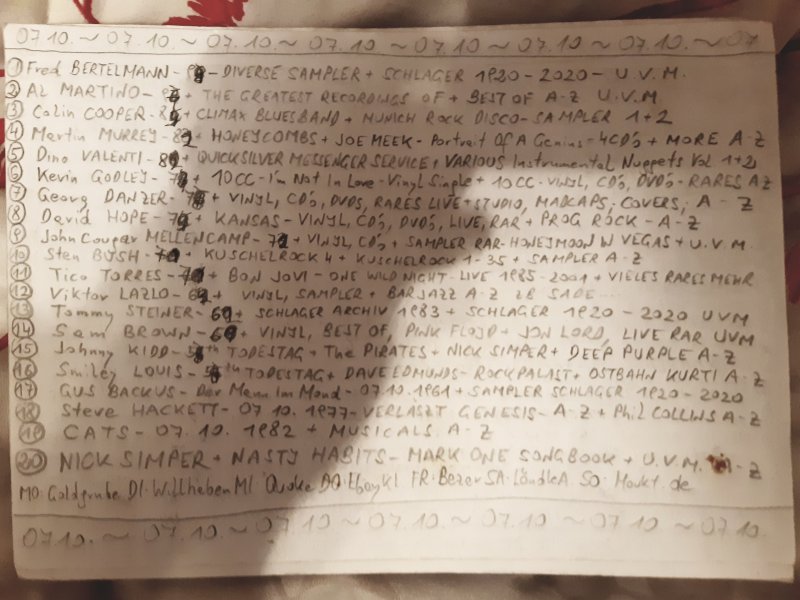 07.10. ~ 07.10. ~ 07.10. ~ 07.10. ~ 07.10. ~ 07.10. ~ 07.10. ~ 07
① Fred BERTELMANN - DIVERSE SAMPLER + SCHLAGER 1920 - 2020 - U.V.M.
② AL MARTINO - + THE GREATEST RECORDINGS OF + BEST OF A-Z U.V.M
③ Colin COOPER - + CLIMAX BLUESBAND + MUNICH ROCK DISCO - SAMPLER 1+2
④ Martin MURREY - + HONEYCOMBS + JOE MEEK - Portrait Of A Genius - 4CD's + MORE A-Z
⑤ Dino VALENTI - + QUICKSILVER MESSENGER SERVICE, VARIOUS Instrumental Nuggets Vol 1+2
⑥ Kevin GODLEY - + 10CC - I'm Not In Love - Vinyl Single + 10CC - VINYL, CD's, DVD's - RARES AZ
⑦ Georg DANZER - + VINYL, CD's, DVDS, RARES LIVE + STUDIO, MADCAPS, COVERS, A - Z
⑧ David HOPE - + KANSAS - VINYL, CD's, DVD's, LIVE, RAR + PROG ROCK - A-Z
⑨ John Cougar MELLENCAMP - + VINYL, CD's + SAMPLER RAR - HONEYMOON IN VEGAS + U.V.M.
⑩ Sten BUSH - + KUSCHELROCK 4 + KUSCHELROCK 1-35 + SAMPLER A-Z
⑪ Tico TORRES - + BON JOVI - ONE WILD NIGHT - LIVE 1985-2001 + VIELES RARES MEHR
⑫ Viktor LAZLO - + VINYL, SAMPLER + BARJAZZ A-Z ZB SADE ....
⑬ Tommy STEINER - + SCHLAGER ARCHIV 1983 + SCHLAGER 1920 - 2020 UVM
⑭ Sam BROWN - + VINYL, BEST OF, PINK FLOYD + JON LORD, LIVE RAR UVM
⑮ Johnny KIDD - TODESTAG + The PIRATES + NICK SIMPER + DEEP PURPLE A-Z
⑯ Smiley LOUIS - TODESTAG + DAVE EDMUNDS - ROCKPALAST + OSTBAHN KURTI A-Z
⑰ GUS BACKUS - Der Mann Im Mond - 07.10.1961 + SAMPLER SCHLAGER 1920 - 2020
⑱ Steve HACKETT - 07.10.1977 - VERLASZT GENESIS - A-Z + Phil COLLINS A-Z
⑲ CATS - 07.10.1982 + MUSICALS A-Z
⑳ NICK SIMPER + NASTY HABITS - MARK ONE SONGBOOK + U.V.M. A-Z
MO. Goldgrube DI. Willhaben MI Quoke DO. Ebay Kl FR. Bazar SA. Ländle A SO. Markt.de
07.10. ~ 07.10. ~ 07.10. ~ 07.10 ~ 07.10 ~ 07.10 ~ 07.10 ~ 07.10.